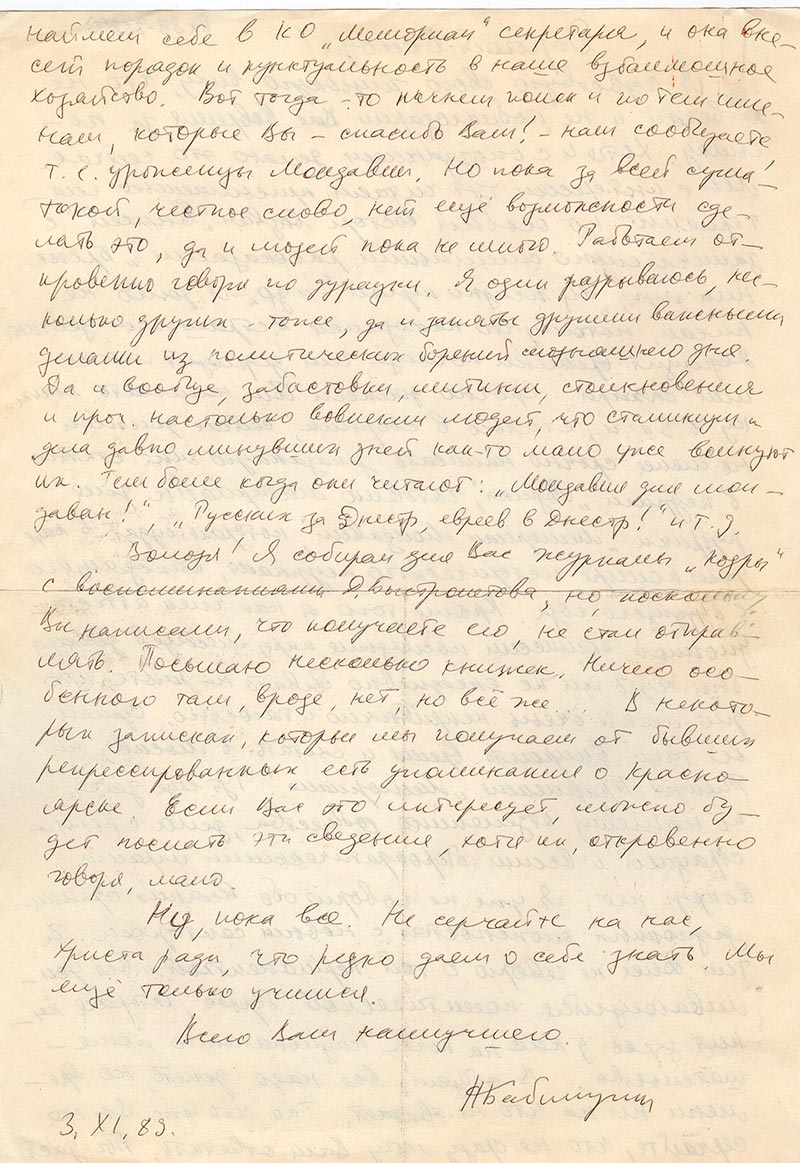 наймем себе в КО „Мемориал“ секретаря, и она вне-
сет порядок и пунктуальность в наше взбалмошное
хозяйство. Вот тогда-то начнем поиск и по тем име-
нам, которые Вы – спасибо Вам! – нам сообщаете,
т.е. уроженцы Молдавии. Но пока за всей сума-
тохой, честное слово, нет ещё возможности сде-
лать это, да и людей пока не много. Работаем от-
кровенно говоря по дурацки. Я один разрываюсь, нес-
колько других - тоже, да и заняты другими важными
делами из политических борений сегодняшнего дня.
Да и вообще, забастовки, митинги, столкновения
и проч. настолько вовлекли людей, что сталинизм и
дела давно минувших дней как-то мало уже волнуют
их. Тем более когда они читают: „Молдавия для мол-
даван!“, „Русских за Днестр, евреев в Днестр!“ и т.д.
Володя! Я собирал для Вас журналы „Кодры“
с воспоминаниями Д. Быстролетова, но, поскольку
Вы написали, что получаете его, не стал отправ-
лять. Посылаю несколько книжек. Ничего осо-
бенного там, вроде, нет, но всё же... В некото-
рых записках, которые мы получаем от бывших
репрессированных, есть упоминания о Красно-
ярске. Если Вас это интересует, можно бу-
дет послать эти сведения, хотя их, откровенно
говоря, мало.
Ну, пока все. Не серчайте на нас,
Христа ради, что редко даем о себе знать. Мы
ещё только учимся.
Всего Вам наилучшего.
3.XI.89.